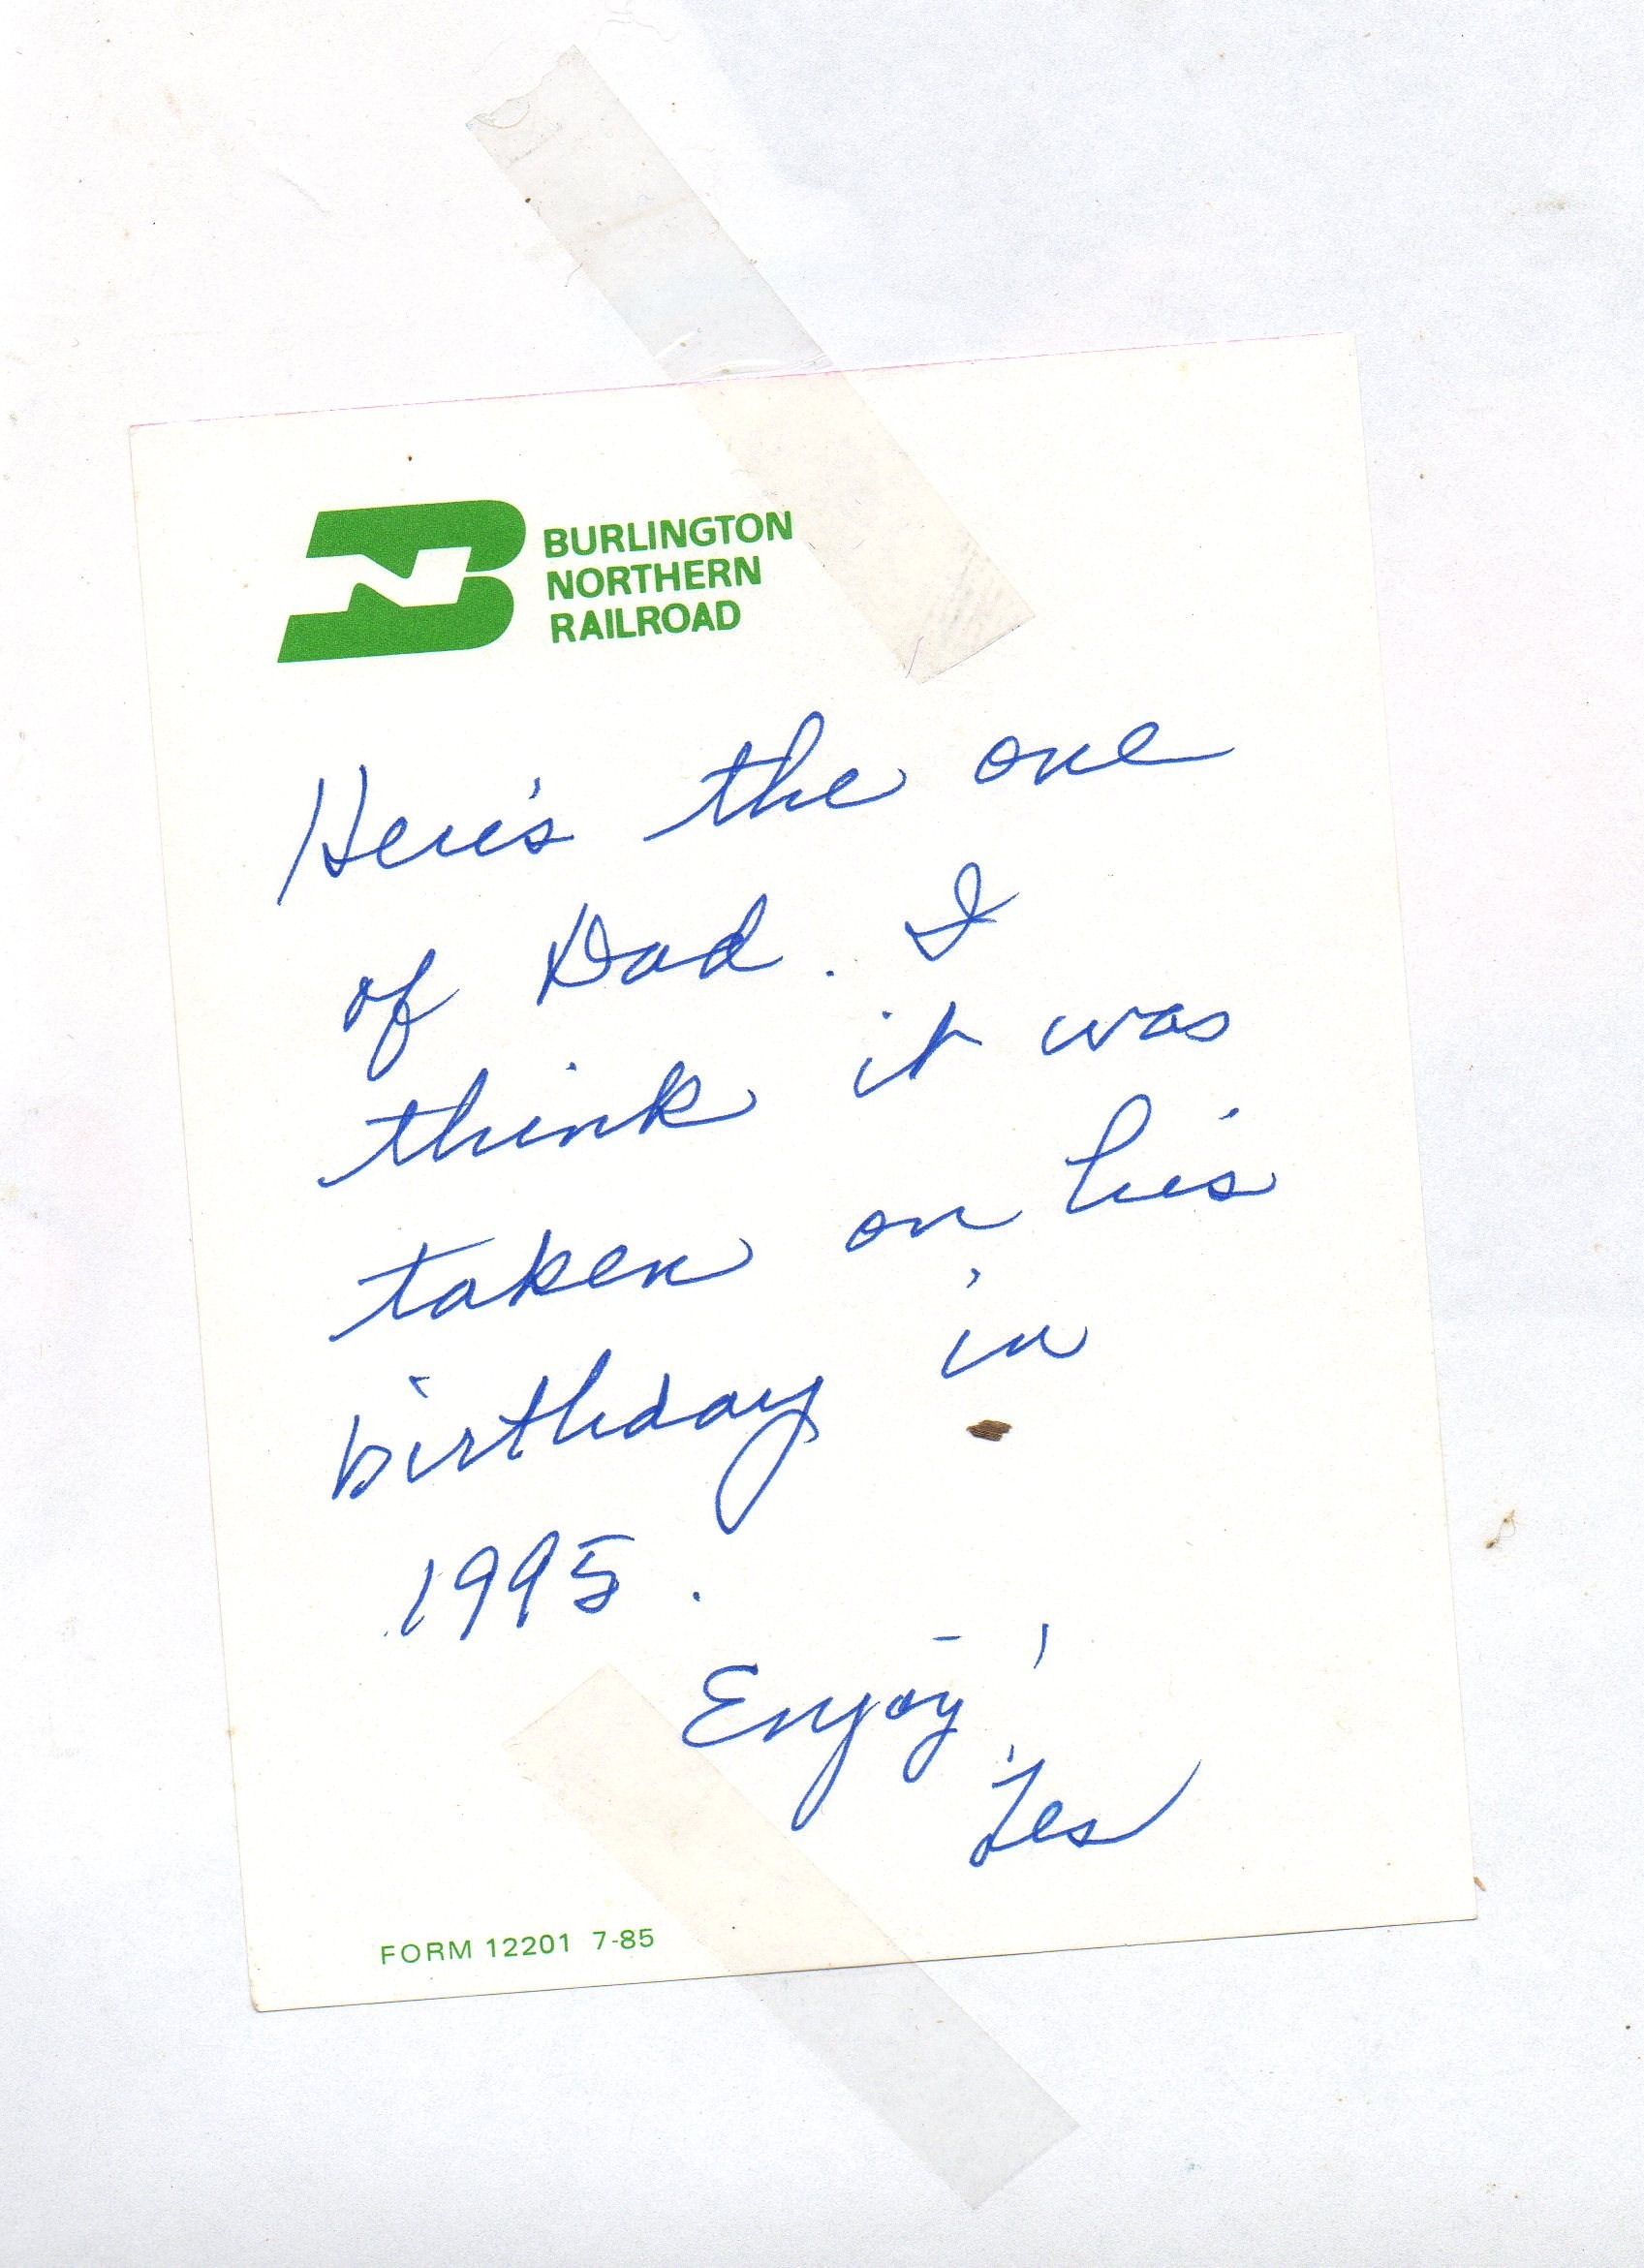 BURLINGTON
NORTHERN
RAILROAD
Here's the one
of Dad. I
think it was
taken on his
birthday in
1995.
Enjoy!
Les
FORM 12201 7-85